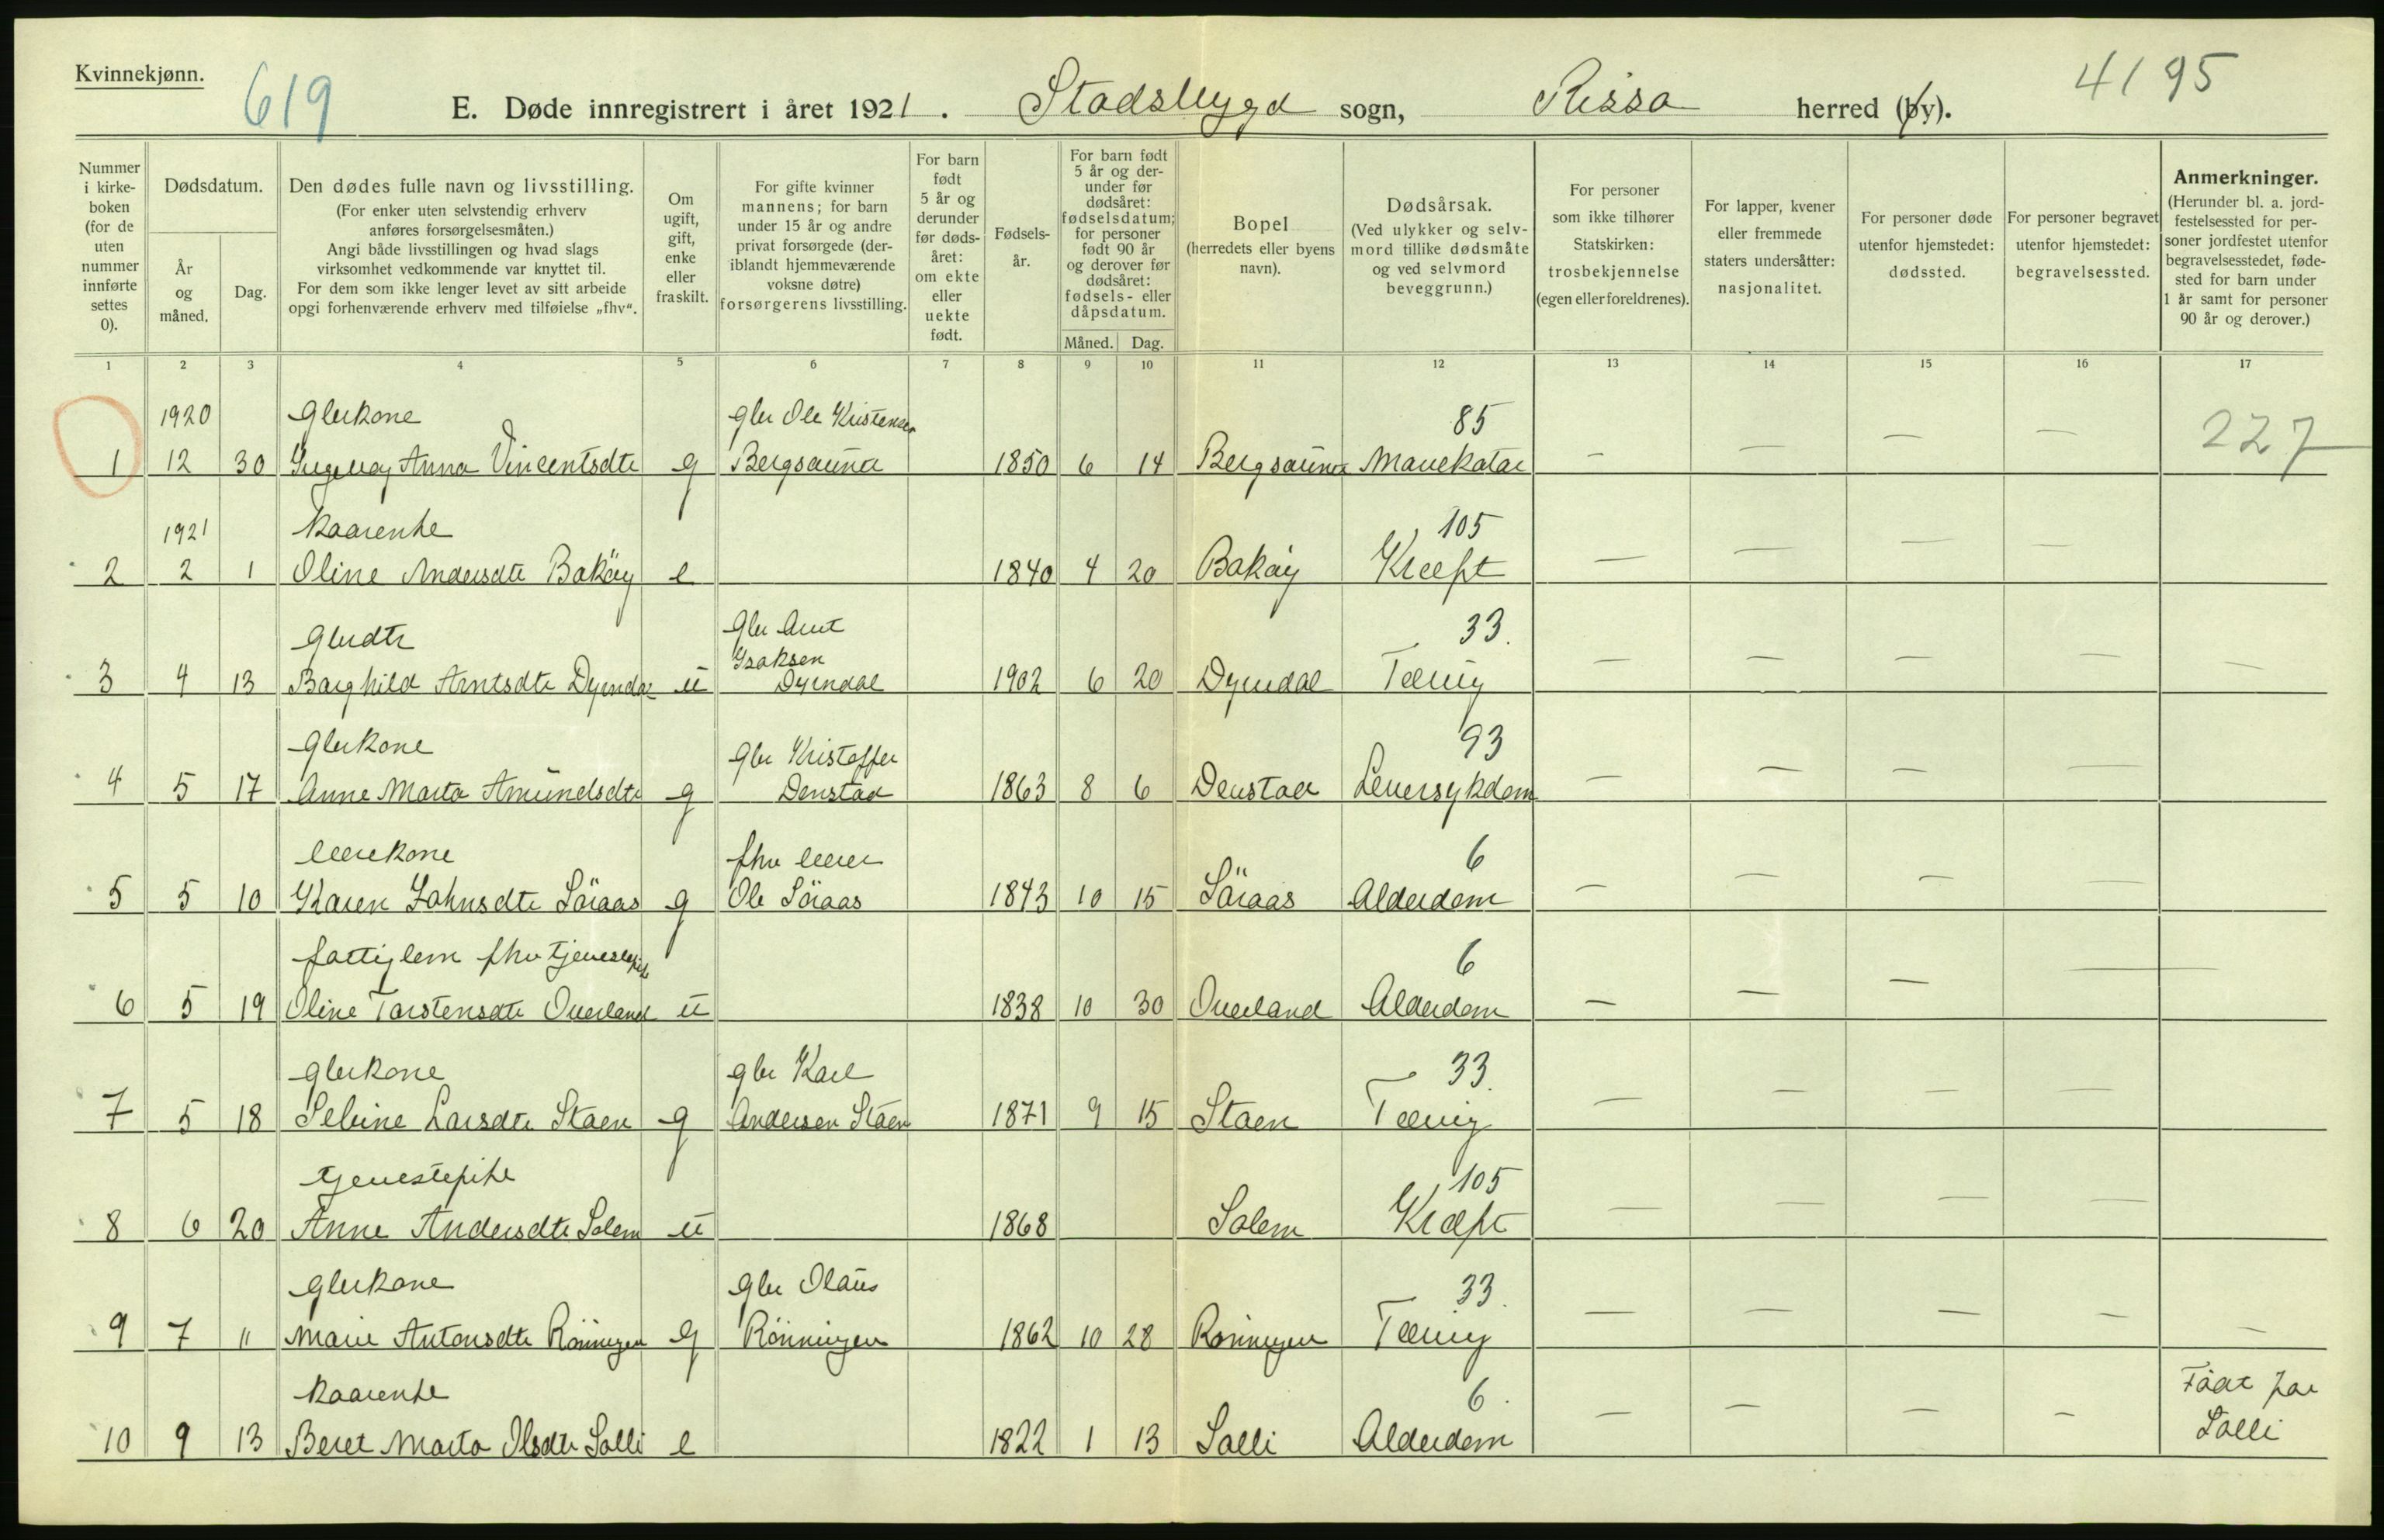 Kvinnekjønn.
619
4195
E. Døde innregistrert i året 1921. Stadsbygd sogn, Rissa herred (by).
Nummer i kirkeboken (for de uten nummer innførte settes 0).
Dødsdatum.
År og måned.
Dag.
Den dødes fulle navn og livsstilling.
(For enker uten selvstendig erhverv anføres forsørgelsesmåten.)
Angi både livsstillingen og hvad slags virksomhet vedkommende var knyttet til.
For dem som ikke lenger levet av sitt arbeide opgi forhenværende erhverv med tilføielse „fhv“.
Om ugift, gift, enke eller fraskilt.
For gifte kvinner mannens; for barn under 15 år og andre privat forsørgede (deriblandt hjemmeværende voksne døtre) forsørgerens livsstilling.
For barn født 5 år og derunder før dødsåret: om ekte eller uekte født.
Fødselsår.
For barn født 5 år og derunder før dødsåret: fødselsdatum; for personer født 90 år og derover før dødsåret: fødsels- eller dåpsdatum.
Måned. Dag.
Bopel (herredets eller byens navn).
Dødsårsak.
(Ved ulykker og selvmord tillike dødsmåte og ved selvmord beveggrunn.)
For personer som ikke tilhører Statskirken: trosbekjennelse (egen eller foreldrenes).
For lapper, kvener eller fremmede staters undersåtter: nasjonalitet.
For personer døde utenfor hjemstedet: dødssted.
For personer begravet utenfor hjemstedet: begravelsessted.
Anmerkninger.
(Herunder bl. a. jordfestelsessted for personer jordfestet utenfor begravelsesstedet, fødested for barn under 1 år samt for personer 90 år og derover.)
1 2 3 4 5 6 7 8 9 10 11 12 13 14 15 16 17
1920 Gbrkone gbr Ole Kristensen 85 227
1 12 30 Ingebor Anna Vincentsdtr g Bergsauna 1850 6 14 Bergsauna Mavekatar – – – –
1921 Kaarenke 105
2 2 1 Oline Andersdtr Bakøy e 1840 4 20 Bakøy Kræft – – – –
Gbrdtr Gbr Arnt 33.
Isaksen
3 4 13 Borghild Arntsdtr Dyrndal u Dyrndal 1902 6 20 Dyrndal Tæring – – – – –
Gbrkone Gbr Kristoffer 93
4 5 17 Anne Marta Amundsdtr g Denstad 1863 8 6 Denstad Leversykdom – – – –
fhv 6
5 5 10 Karen Johnsdtr Søraas g Ole Søraas 1843 10 15 Søraas Alderdom – – – –
fattiglem fhv tjenestepike 6
6 5 19 Oline Torstensdtr Overland u 1838 10 30 Overland Alderdom – – – –
gbrkone gbr Karl 33.
7 5 18 Seline Larsdtr Staen g Andersen Staen 1871 9 15 Staen Tæring – – – –
tjenestepike 105
8 6 20 Anne Andersdtr Solem u 1868 Solem Kræft – – – –
gbrkone Gbr Olaus 33.
9 7 11 Marie Antonsdtr Rønningen g Rønningen 1862 10 28 Rønningen Tæring – – – – –
Kaarenke 6. Født paa
10 9 13 Beret Marta Olsdtr Solli e 1822 1 13 Solli Alderdom – – – – Solli